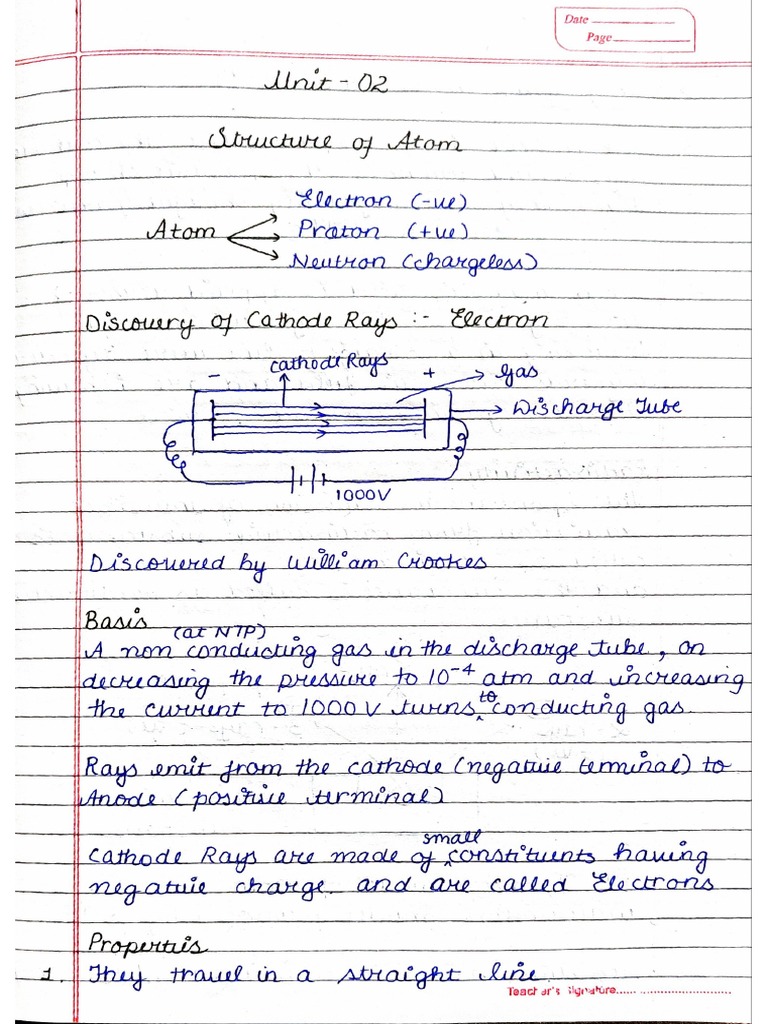 Date
Page
Unit - 02
Structure of Atom
Electron (-ve)
Atom Proton (+ve)
Neutron (chargeless)
Discovery of Cathode Rays :- Electron
- cathode Rays + Gas
Discharge Tube
1000V
Discovered by William Crookes
Basis
(at NTP)
A non conducting gas in the discharge tube, on
decreasing the pressure to 10⁻⁴ atm and increasing
the current to 1000 V turns to conducting gas.
Rays emit from the cathode (negative terminal) to
Anode (positive terminal)
Cathode Rays are made of small constituents having
negative charge and are called Electrons
Properties
1. They travel in a straight line
Teacher's Signature